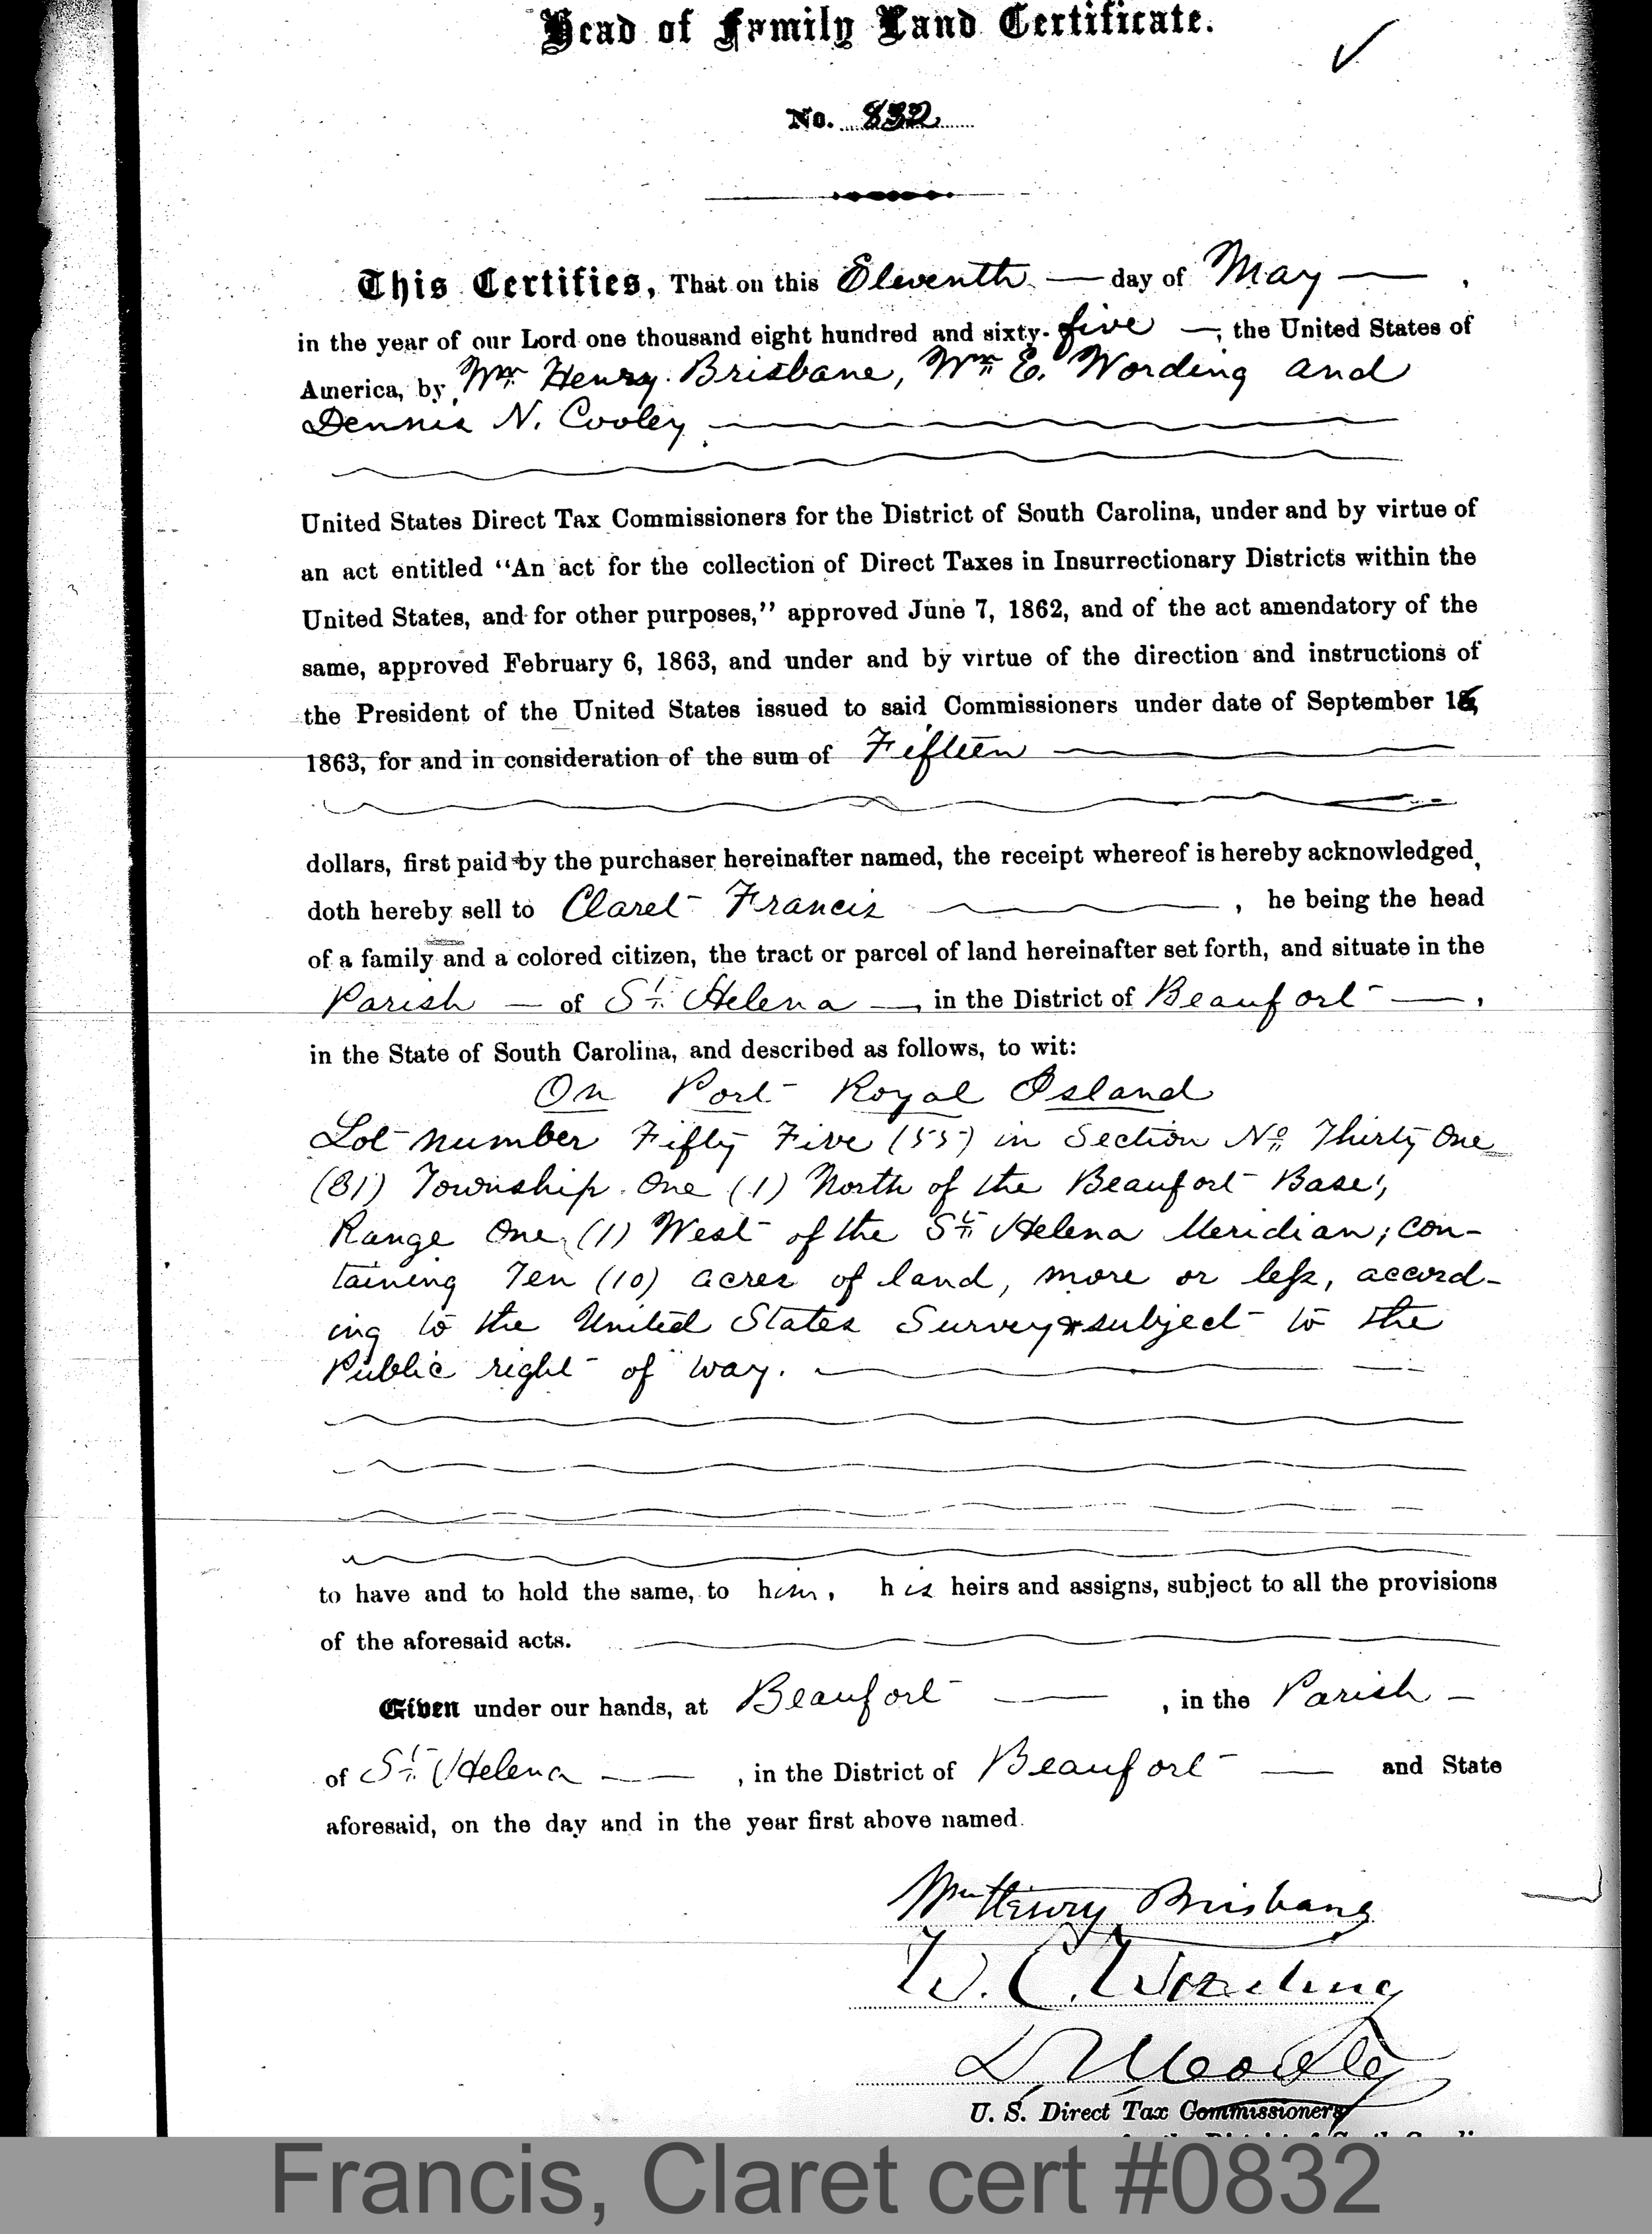 Head of Family Land Certificate.
No. 832
This Certifies, That on this Eleventh — day of May — ,
in the year of our Lord one thousand eight hundred and sixty-five —, the United States of
America, by Wm Henry Brisbane, Wm E. Wording and
Dennis N. Cooley
United States Direct Tax Commissioners for the District of South Carolina, under and by virtue of
an act entitled “An act for the collection of Direct Taxes in Insurrectionary Districts within the
United States, and for other purposes,” approved June 7, 1862, and of the act amendatory of the
same, approved February 6, 1863, and under and by virtue of the direction and instructions of
the President of the United States issued to said Commissioners under date of September 16,
1863, for and in consideration of the sum of Fifteen
dollars, first paid by the purchaser hereinafter named, the receipt whereof is hereby acknowledged,
doth hereby sell to Claret Francis , he being the head
of a family and a colored citizen, the tract or parcel of land hereinafter set forth, and situate in the
Parish — of St. Helena —, in the District of Beaufort — ,
in the State of South Carolina, and described as follows, to wit:
On Port Royal Island
Lot number Fifty Five (55) in Section No Thirty One
(31) Township One (1) North of the Beaufort Base;
Range One (1) West of the St. Helena Meridian; con-
taining Ten (10) acres of land, more or less, accord-
ing to the United States Survey & subject to the
Public right of way.
to have and to hold the same, to him, his heirs and assigns, subject to all the provisions
of the aforesaid acts.
Given under our hands, at Beaufort — , in the Parish —
of St. Helena — , in the District of Beaufort — and State
aforesaid, on the day and in the year first above named.
Wm Henry Brisbane
W. E. Wording
D. N. Cooley
U. S. Direct Tax Commissioners
Francis, Claret cert #0832